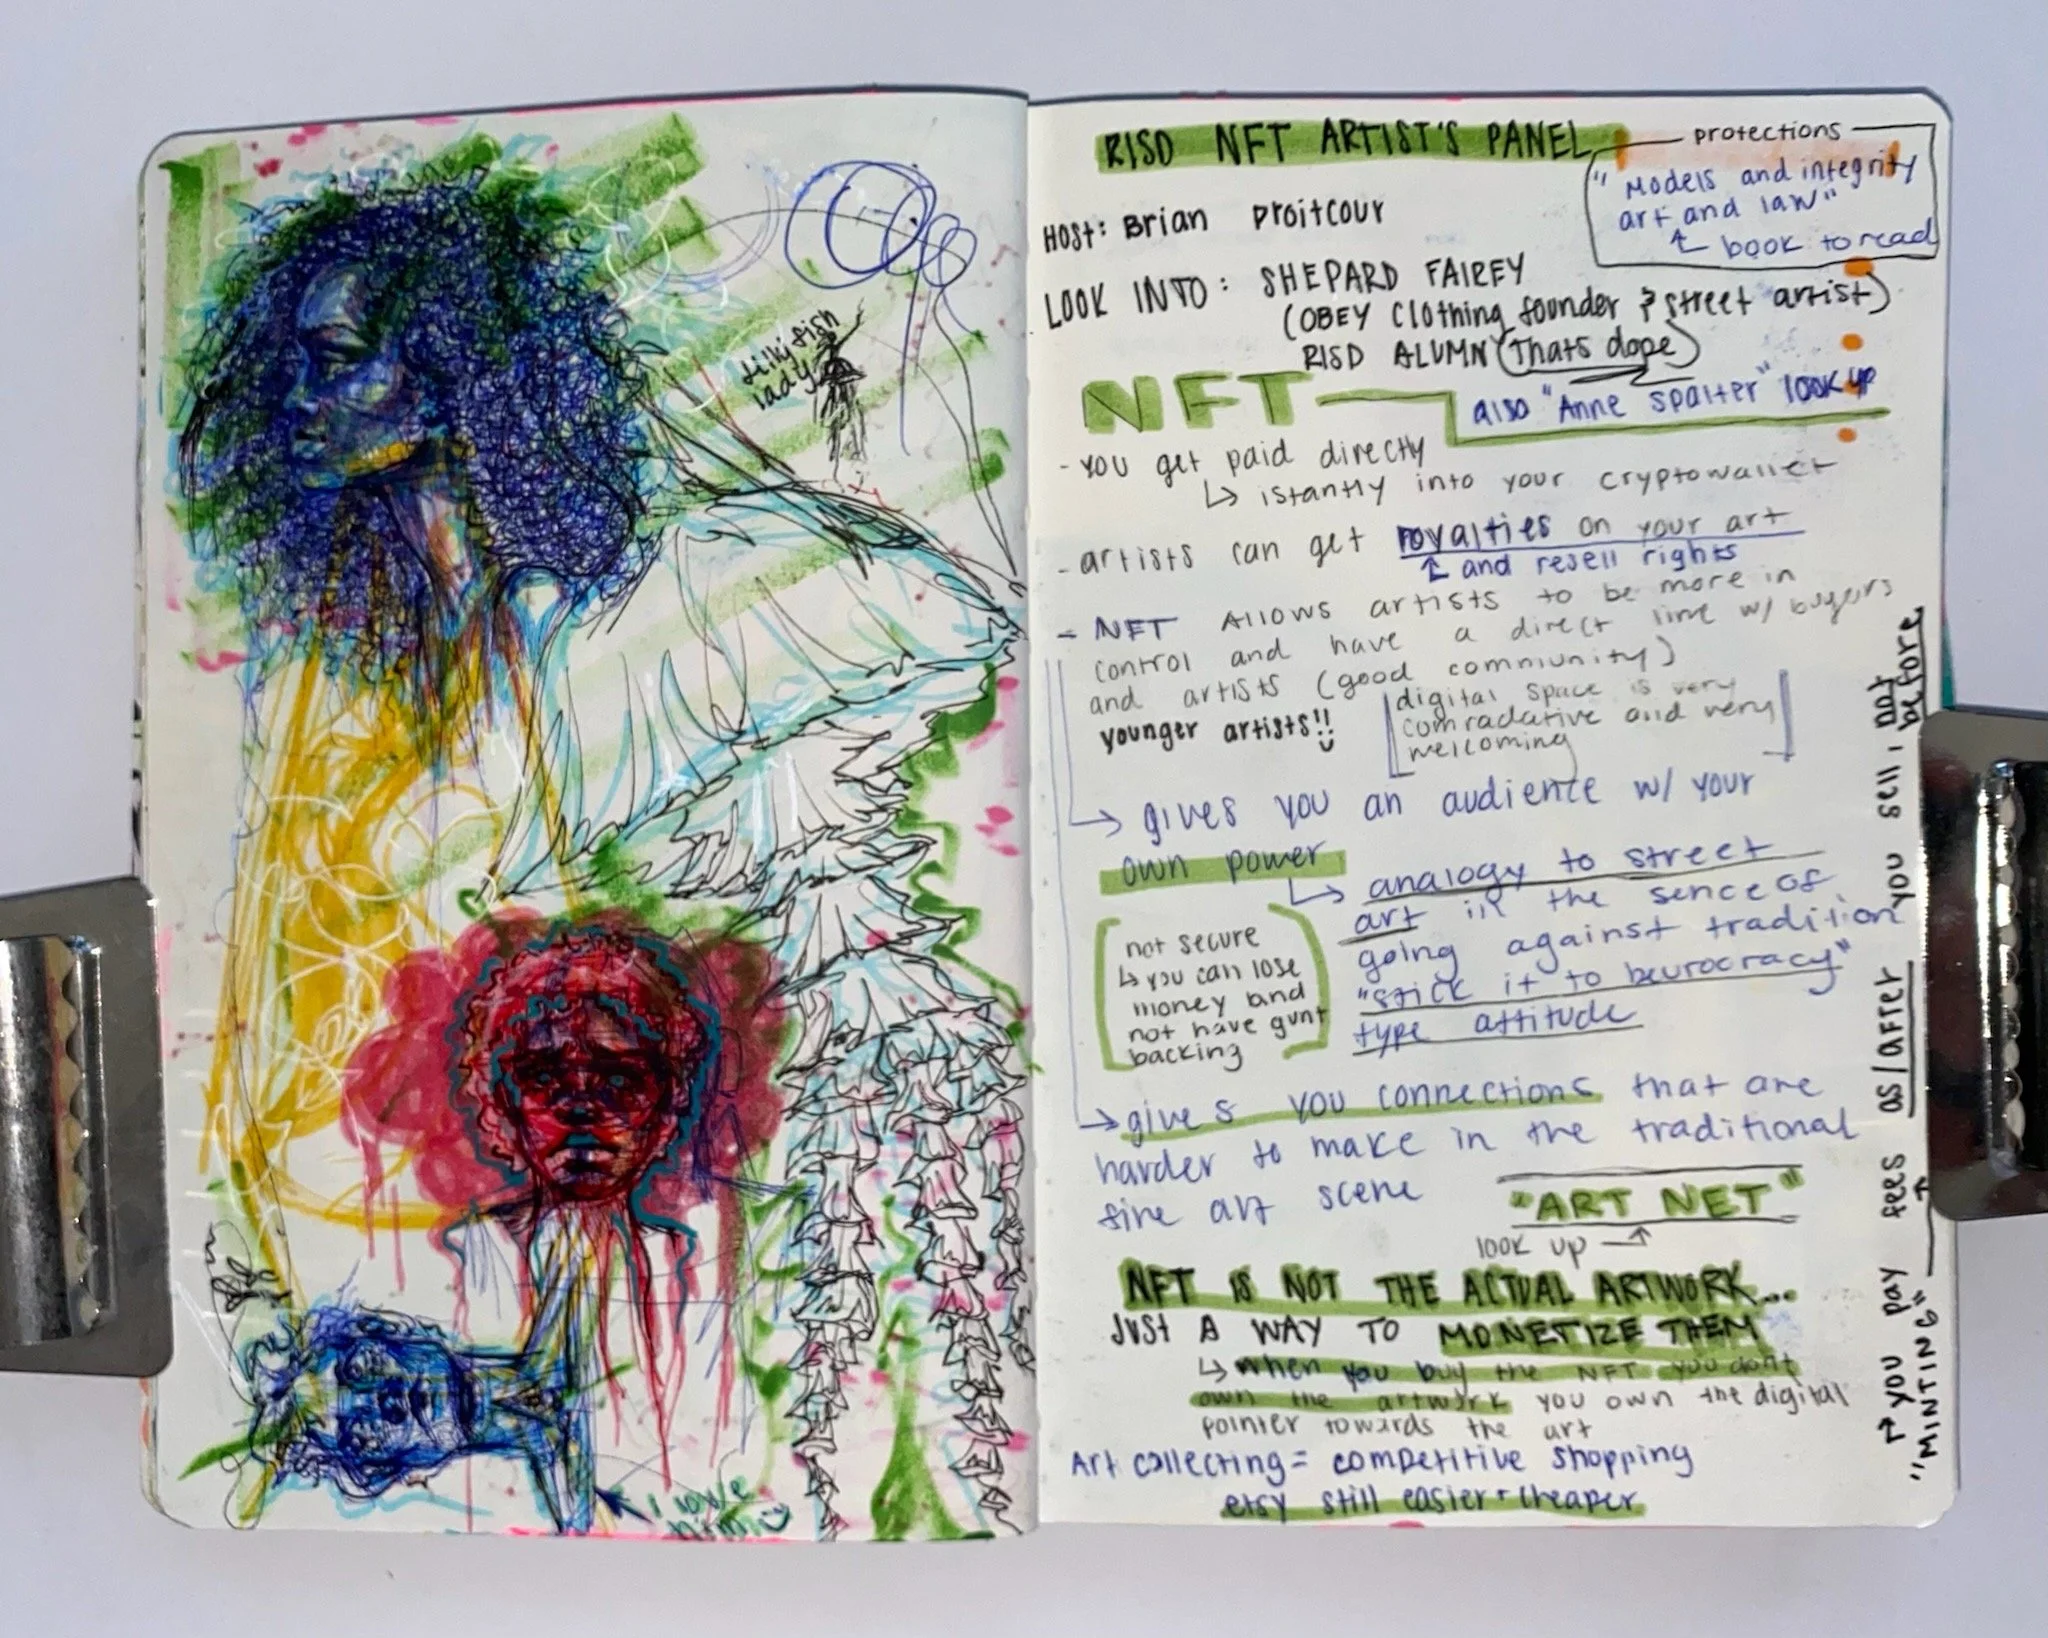 Jillyfish
lady
i love
him
RISD NFT ARTIST'S PANEL
protections
"Models and integrity
art and law"
book to read
HOST: Brian Droitcour
LOOK INTO: SHEPARD FAIREY
(OBEY Clothing founder & street artist)
RISD ALUMN (thats dope)
NFT
also "Anne Spalter" look up
- you get paid directly
↳ istantly into your cryptowallet
- artists can get royalties on your art
and resell rights
- NFT Allows artists to be more in
control and have a direct line w/ buyers
and artists (good community)
younger artists!!
digital space is very
comradative and very
welcoming
→ gives you an audience w/ your
own power
↳ analogy to street
art in the sence of
going against tradition
"stick it to beurocracy"
type attitude
not secure
↳ you can lose
money and
not have gvnt
backing
→ gives you connections that are
harder to make in the traditional
fine art scene
"ART NET"
look up →
NFT IS NOT THE ACTUAL ARTWORK...
JUST A WAY TO MONETIZE THEM
↳ when you buy the NFT you dont
own the artwork you own the digital
pointer towards the art
Art collecting = competitive shopping
etsy still easier + cheaper
→ you pay fees as/after you sell, not
before
"MINTING"